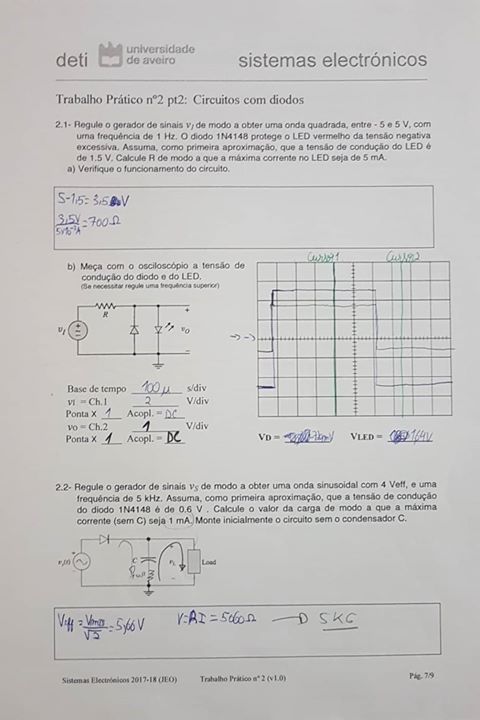 deti universidade de aveiro sistemas electrónicos
Trabalho Prático nº2 pt2: Circuitos com diodos
2.1- Regule o gerador de sinais vI de modo a obter uma onda quadrada, entre - 5 e 5 V, com
uma frequência de 1 Hz. O diodo 1N4148 protege o LED vermelho da tensão negativa
excessiva. Assuma, como primeira aproximação, que a tensão de condução do LED é
de 1.5 V. Calcule R de modo a que a máxima corrente no LED seja de 5 mA.
a) Verifique o funcionamento do circuito.
5-1,5=3,5 V
3,5V
5x10⁻³A
=700Ω
b) Meça com o osciloscópio a tensão de
condução do diodo e do LED.
(Se necessitar regule uma frequência superior)
Cursor1 Cursor2
R
vI
+
vO
-
Base de tempo 100 µ s/div
vI = Ch.1 2 V/div
Ponta X 1 Acopl. = DC
vO = Ch.2 1 V/div
Ponta X 1 Acopl. = DC
VD = mV VLED = 1,64V
2.2- Regule o gerador de sinais vS de modo a obter uma onda sinusoidal com 4 Veff, e uma
frequência de 5 kHz. Assuma, como primeira aproximação, que a tensão de condução
do diodo 1N4148 é de 0.6 V . Calcule o valor da carga de modo a que a máxima
corrente (sem C) seja 1 mA. Monte inicialmente o circuito sem o condensador C.
vs(t)
C
vL
Load
Veff = Vmax
√2
= 5,66 V
V=RI = 5060Ω
5K6
Sistemas Electrónicos 2017-18 (JEO) Trabalho Prático nº 2 (v1.0) Pág. 7/9